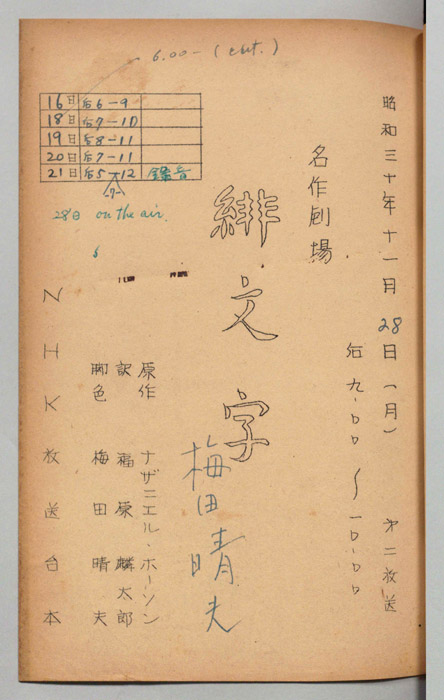 6.00-(cut.)
16日 后6-9
18日 后7-10
19日 后8-11
20日 后7-11
21日 后5-12 録音
-7-
28日 on the air.
6
昭和三十年十一月28日(月) 第二放送
后九・〇〇〜一〇・〇〇
名作劇場
緋文字
梅田晴夫
原作 ナザニエル・ホーソン
訳 福原麟太郎
脚色 梅田晴夫
NHK放送台本